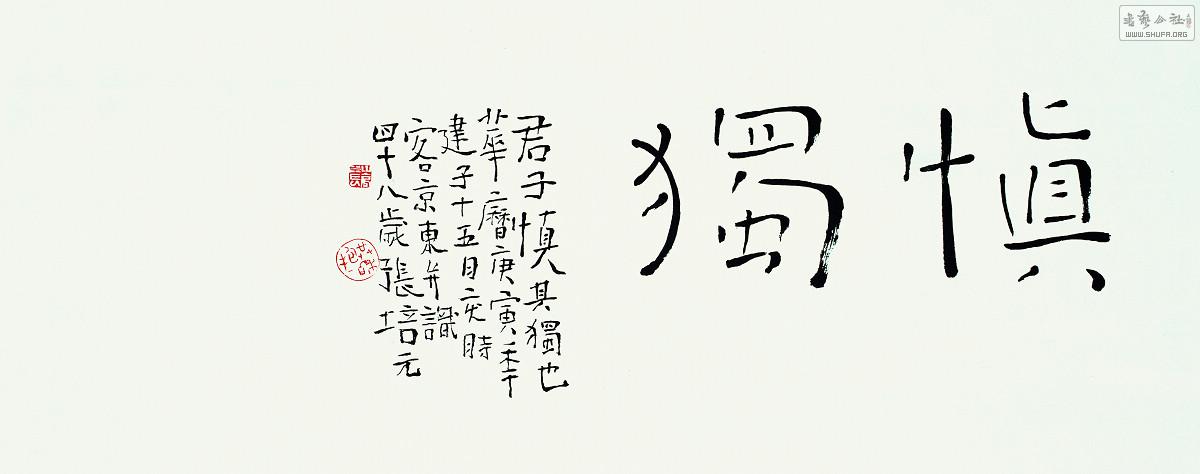 愼獨
君子愼其獨也
華曆庚寅秊
建子十五日亥時
客京東并識
四十八歲張培元
書藝公社
WWW.SHUFA.ORG